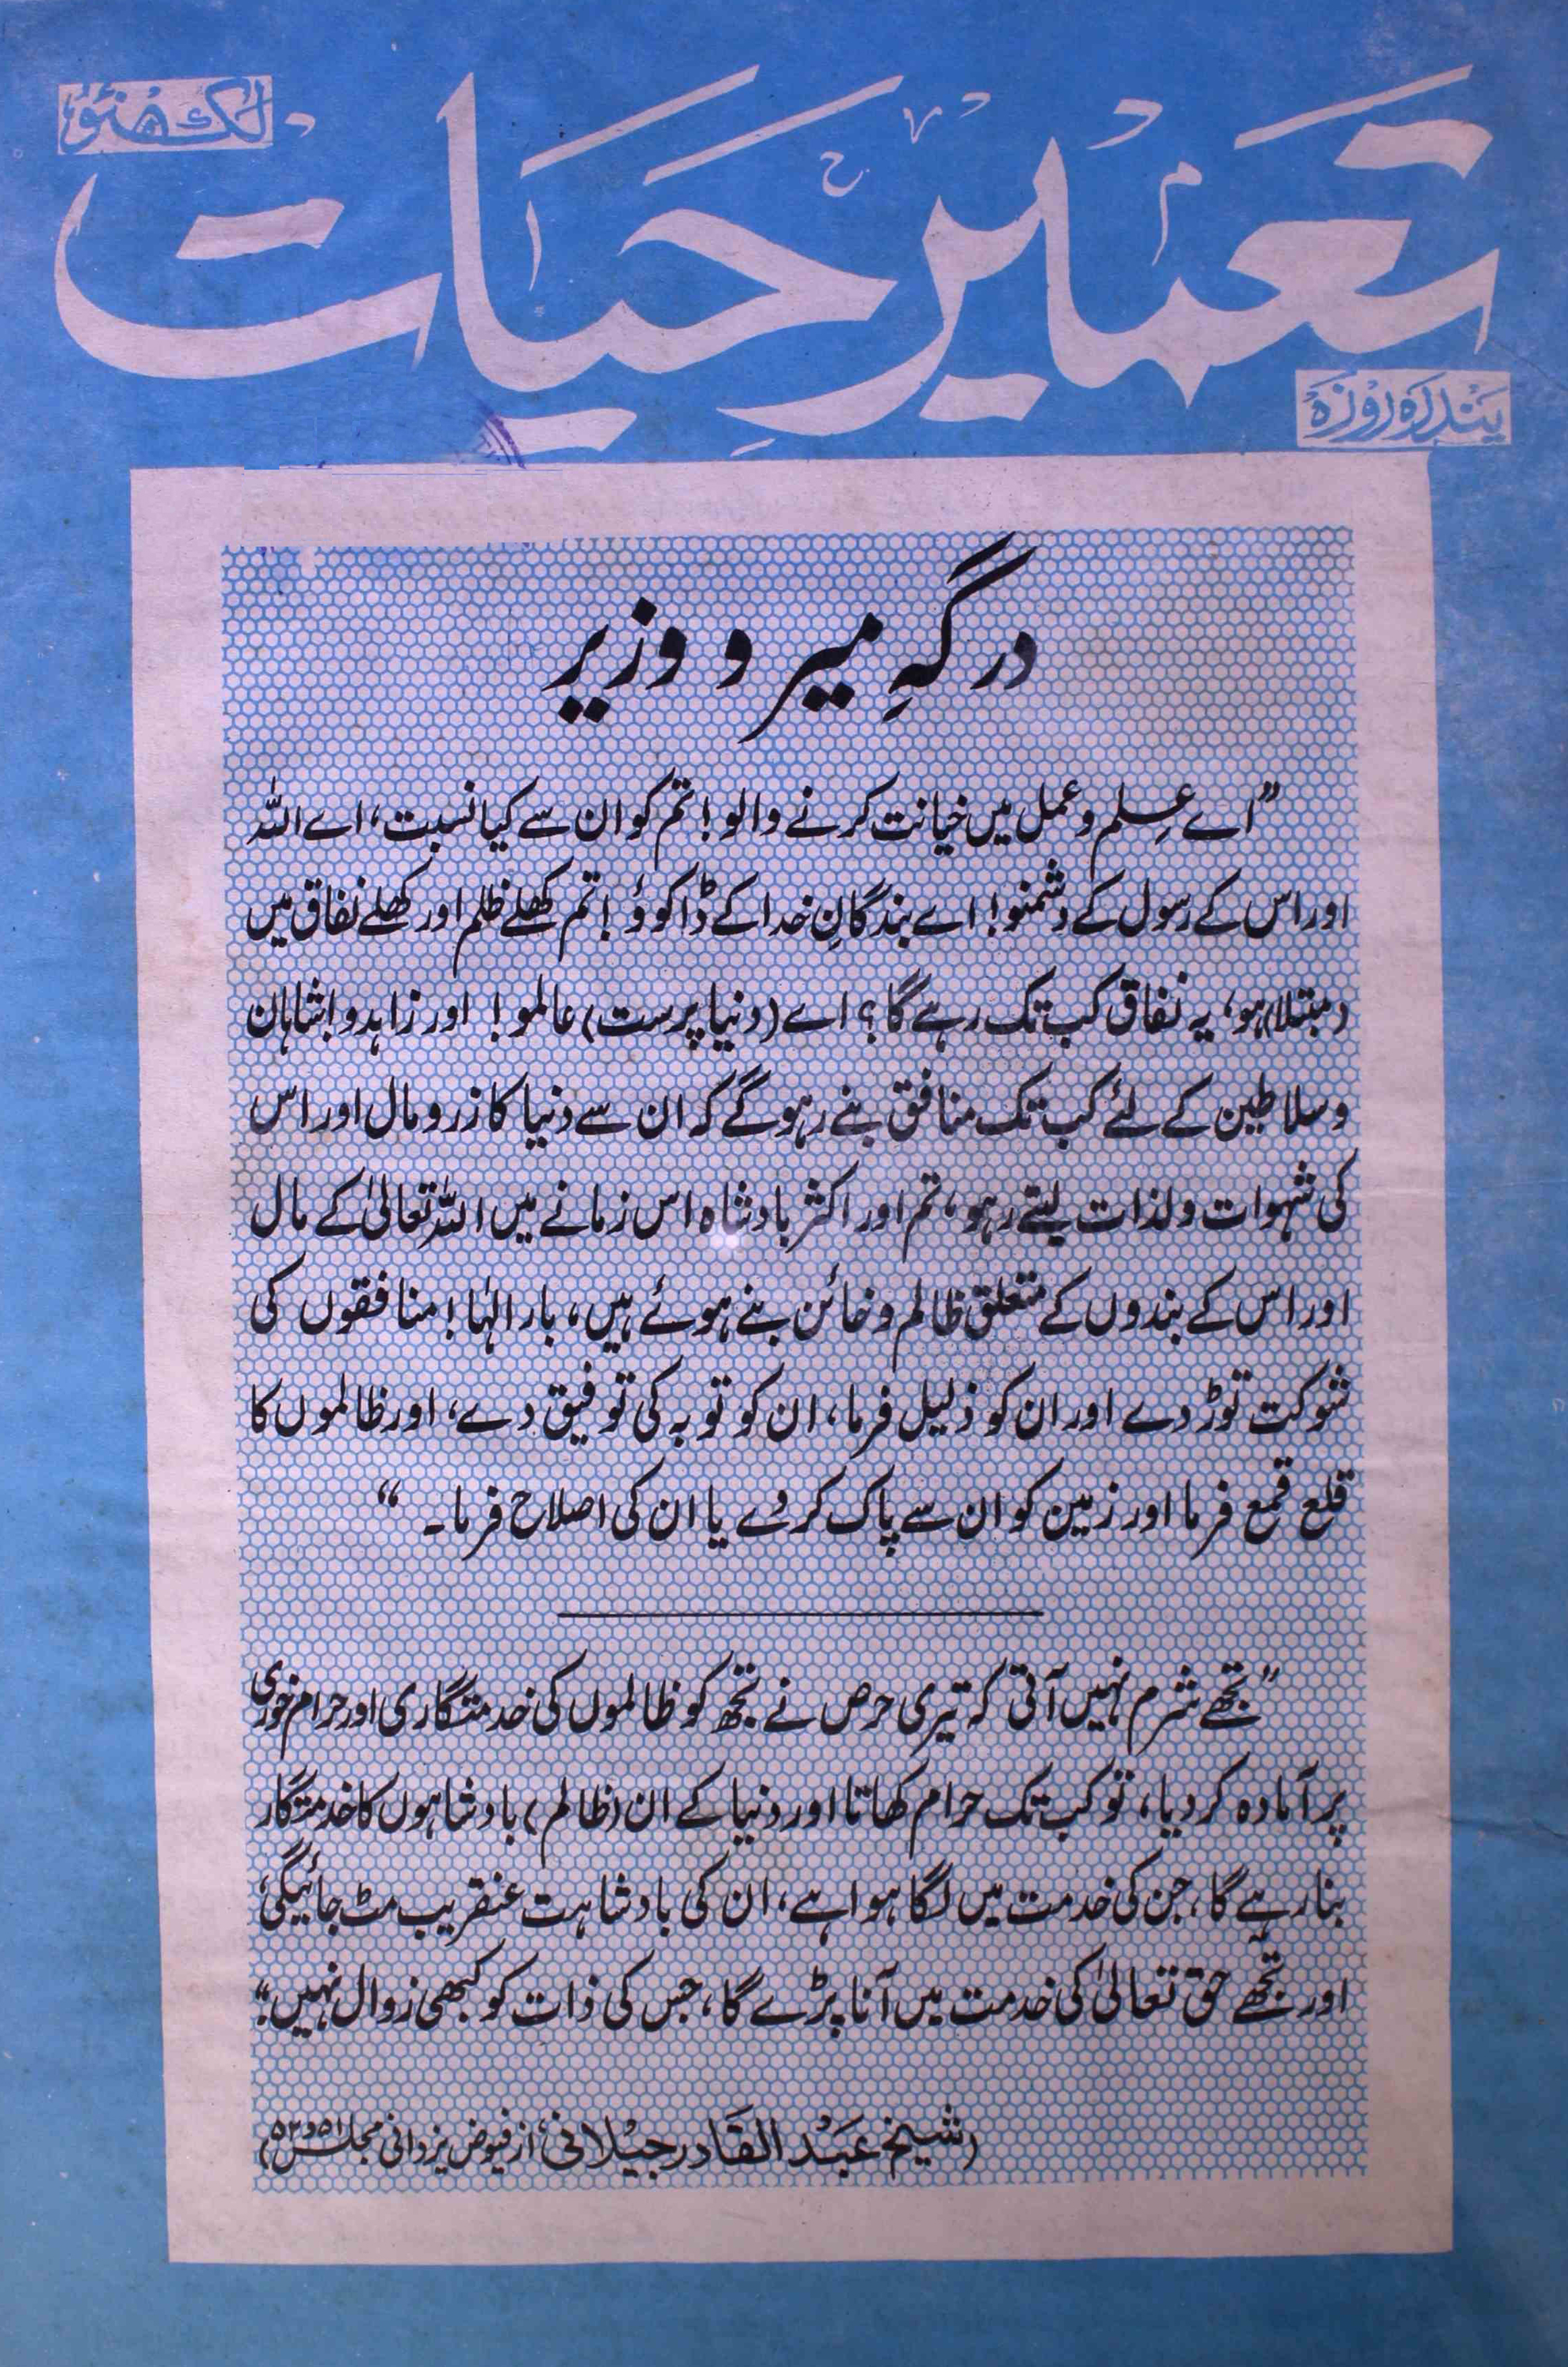 لکھنؤ
تعمیر حیات
پندرہ روزہ
درگہِ میر و وزیر
"اے علم و عمل میں خیانت کرنے والو! تم کو ان سے کیا نسبت، اے اللہ
اور اس کے رسول کے دشمنو! اے بندگانِ خدا کے ڈاکوؤ! تم کھلے ظلم اور کھلے نفاق میں
(مبتلا) ہو، یہ نفاق کب تک رہے گا؟ اے (دنیا پرست) عالمو! اور زاہدو! شاہان
و سلاطین کے لئے کب تک منافق بنے رہو گے کہ ان سے دنیا کا زر و مال اور اس
کی شہوات و لذات لیتے رہو، تم اور اکثر بادشاہ اس زمانے میں اللہ تعالیٰ کے مال
اور اس کے بندوں کے متعلق ظالم و خائن بنے ہوئے ہیں، بار الٰہا! منافقوں کی
شوکت توڑ دے اور ان کو ذلیل فرما، ان کو توبہ کی توفیق دے، اور ظالموں کا
قلع قمع فرما اور زمین کو ان سے پاک کر دے یا ان کی اصلاح فرما۔"
"تجھے شرم نہیں آتی کہ تیری حرص نے تجھ کو ظالموں کی خدمتگاری اور حرام خوری
پر آمادہ کر دیا، تو کب تک حرام کھاتا اور دنیا کے ان (ظالم) بادشاہوں کا خدمتگار
بنا رہے گا، جن کی خدمت میں لگا ہوا ہے، ان کی بادشاہت عنقریب مٹ جائیگی،
اور تجھے حق تعالیٰ کی خدمت میں آنا پڑے گا، جس کی ذات کو کبھی زوال نہیں"
(شیخ عبد القادر جیلانیؒ از فیوض یزدانی مجلس ۵۱ و ۵۲)